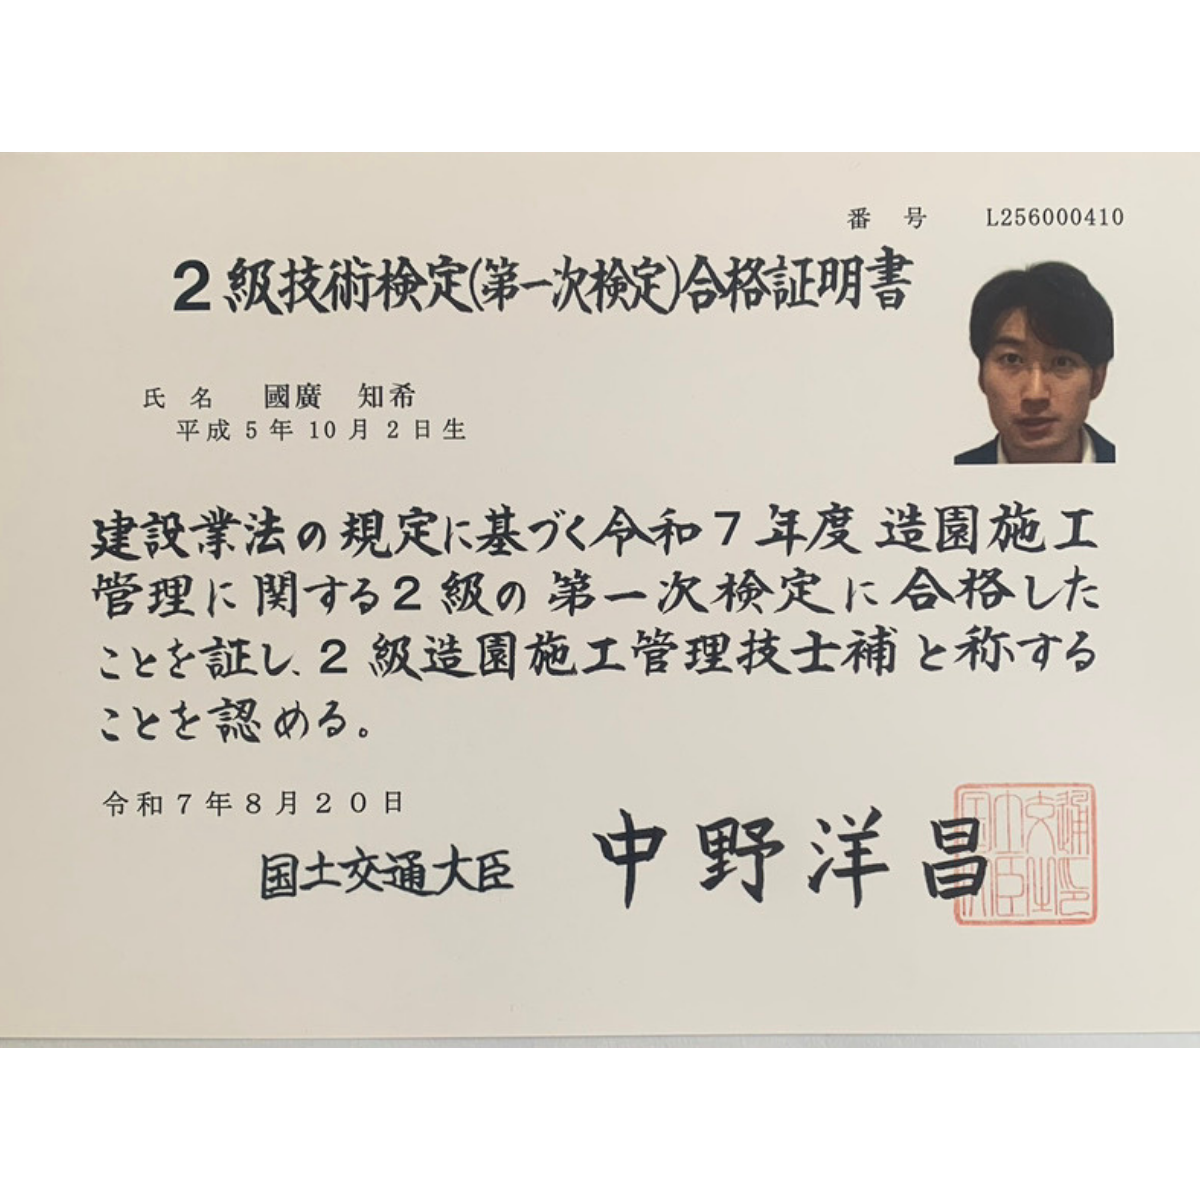 番 号 L256000410
2級技術検定(第一次検定)合格証明書
氏 名 國廣 知希
平成 5年 10月 2日生
建設業法の規定に基づく令和7年度 造園施工
管理に関する2級の第一次検定に合格した
ことを証し、2級造園施工管理技士補と称する
ことを認める。
令和7年8月20日
国土交通大臣 中野洋昌